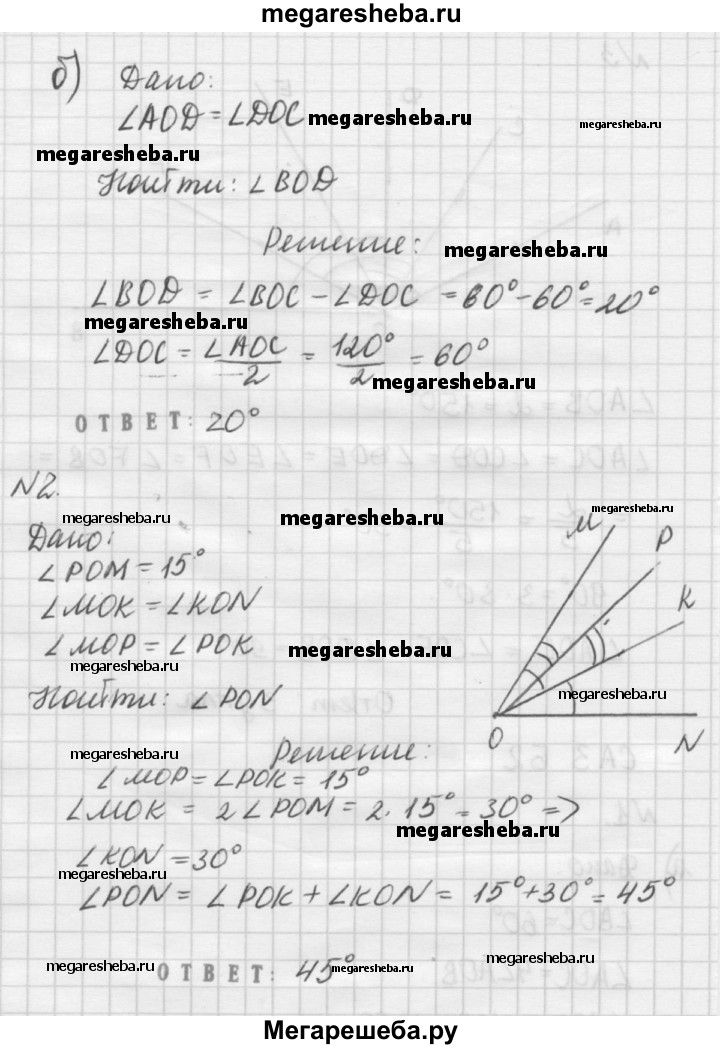 megaresheba.ru
б) Дано:
∠AOD = ∠DOC megaresheba.ru
megaresheba.ru
megaresheba.ru
Найти: ∠BOD
Решение: megaresheba.ru
∠BOD = ∠BOC − ∠DOC = 80° − 60° = 20°
megaresheba.ru
∠DOC = ∠AOC/2 = 120°/2 = 60°
megaresheba.ru
ОТВЕТ: 20°
N2.
megaresheba.ru megaresheba.ru megaresheba.ru
Дано:
∠POM = 15°
∠MOK = ∠KON
∠MOP = ∠POK megaresheba.ru
megaresheba.ru
Найти: ∠PON
M
P
K
megaresheba.ru
O N
megaresheba.ru Решение:
∠MOP = ∠POK = 15°
∠MOK = 2∠POM = 2·15° = 30° =>
megaresheba.ru
∠KON = 30°
megaresheba.ru
∠PON = ∠POK + ∠KON = 15° + 30° = 45°
megaresheba.ru ОТВЕТ: 45° megaresheba.ru megaresheba.ru
Мегарешеба.ру